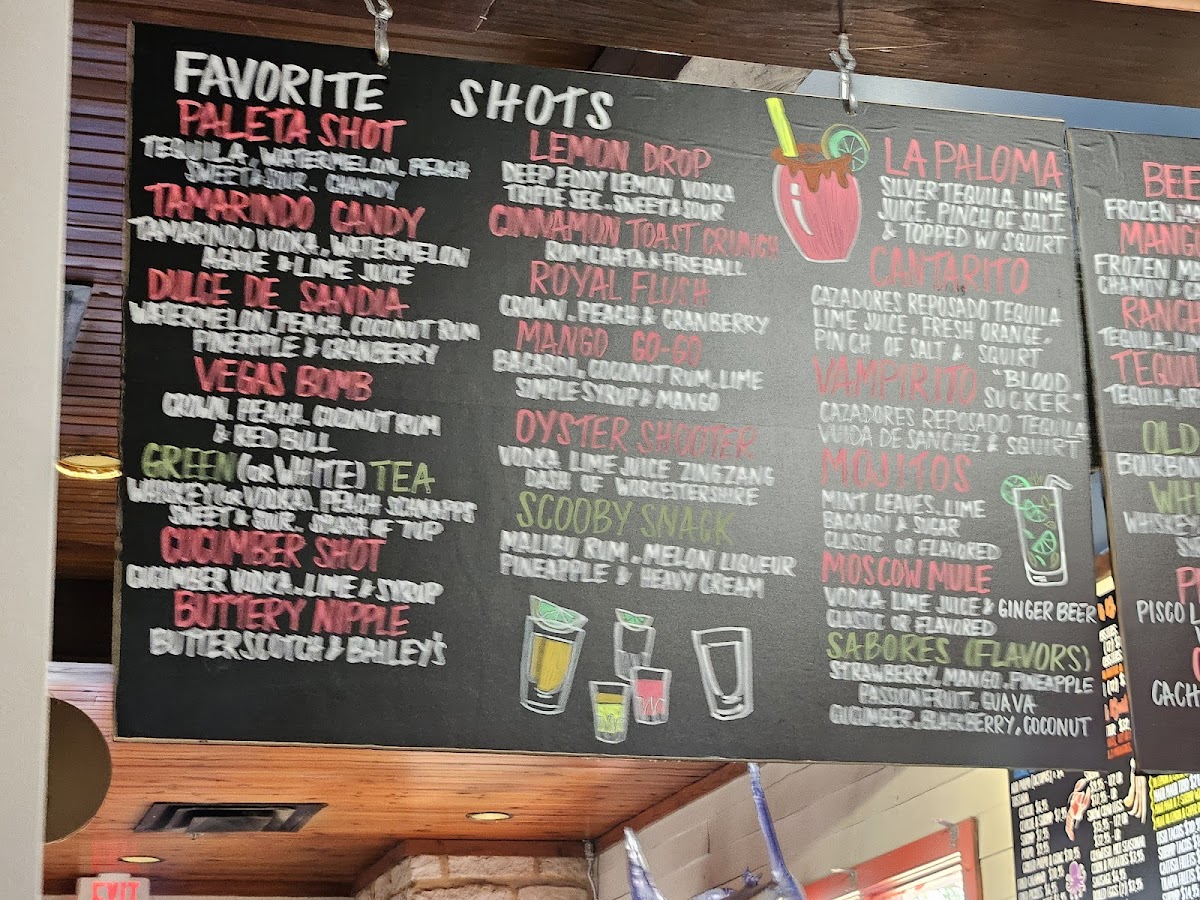 FAVORITE SHOTS
PALETA SHOT
TEQUILA, WATERMELON, PEACH
SWEET & SOUR, CHAMOY
TAMARINDO CANDY
TAMARINDO VODKA, WATERMELON
AGAVE & LIME JUICE
DULCE DE SANDIA
WATERMELON, PEACH, COCONUT RUM
PINEAPPLE & CRANBERRY
VEGAS BOMB
CROWN, PEACH, COCONUT RUM
& RED BULL
GREEN (OR WHITE) TEA
WHISKEY (OR VODKA), PEACH SCHNAPPS
SWEET & SOUR, SPLASH OF 7UP
CUCUMBER SHOT
CUCUMBER VODKA, LIME & SYRUP
BUTTERY NIPPLE
BUTTERSCOTCH & BAILEY'S
LEMON DROP
DEEP EDDY LEMON VODKA
TRIPLE SEC, SWEET & SOUR
CINNAMON TOAST CRUNCH
RUMCHATA & FIREBALL
ROYAL FLUSH
CROWN, PEACH & CRANBERRY
MANGO GO-GO
BACARDI, COCONUT RUM, LIME
SIMPLE SYRUP & MANGO
OYSTER SHOOTER
VODKA LIME JUICE ZING ZANG
DASH OF WORCESTERSHIRE
SCOOBY SNACK
MALIBU RUM, MELON LIQUEUR
PINEAPPLE & HEAVY CREAM
LA PALOMA
SILVER TEQUILA, LIME
JUICE, PINCH OF SALT
& TOPPED W/ SQUIRT
CANTARITO
CAZADORES REPOSADO TEQUILA
LIME JUICE, FRESH ORANGE,
PINCH OF SALT & SQUIRT
VAMPIRITO "BLOOD SUCKER"
CAZADORES REPOSADO TEQUILA
VUIDA DE SANCHEZ & SQUIRT
MOJITOS
MINT LEAVES, LIME
BACARDI & SUGAR
CLASSIC OR FLAVORED
MOSCOW MULE
VODKA LIME JUICE & GINGER BEER
CLASSIC OR FLAVORED
SABORES (FLAVORS)
STRAWBERRY, MANGO, PINEAPPLE
PASSIONFRUIT, GUAVA
CUCUMBER, BLACKBERRY, COCONUT
FROZEN
FROZEN
BOURBON
EXIT